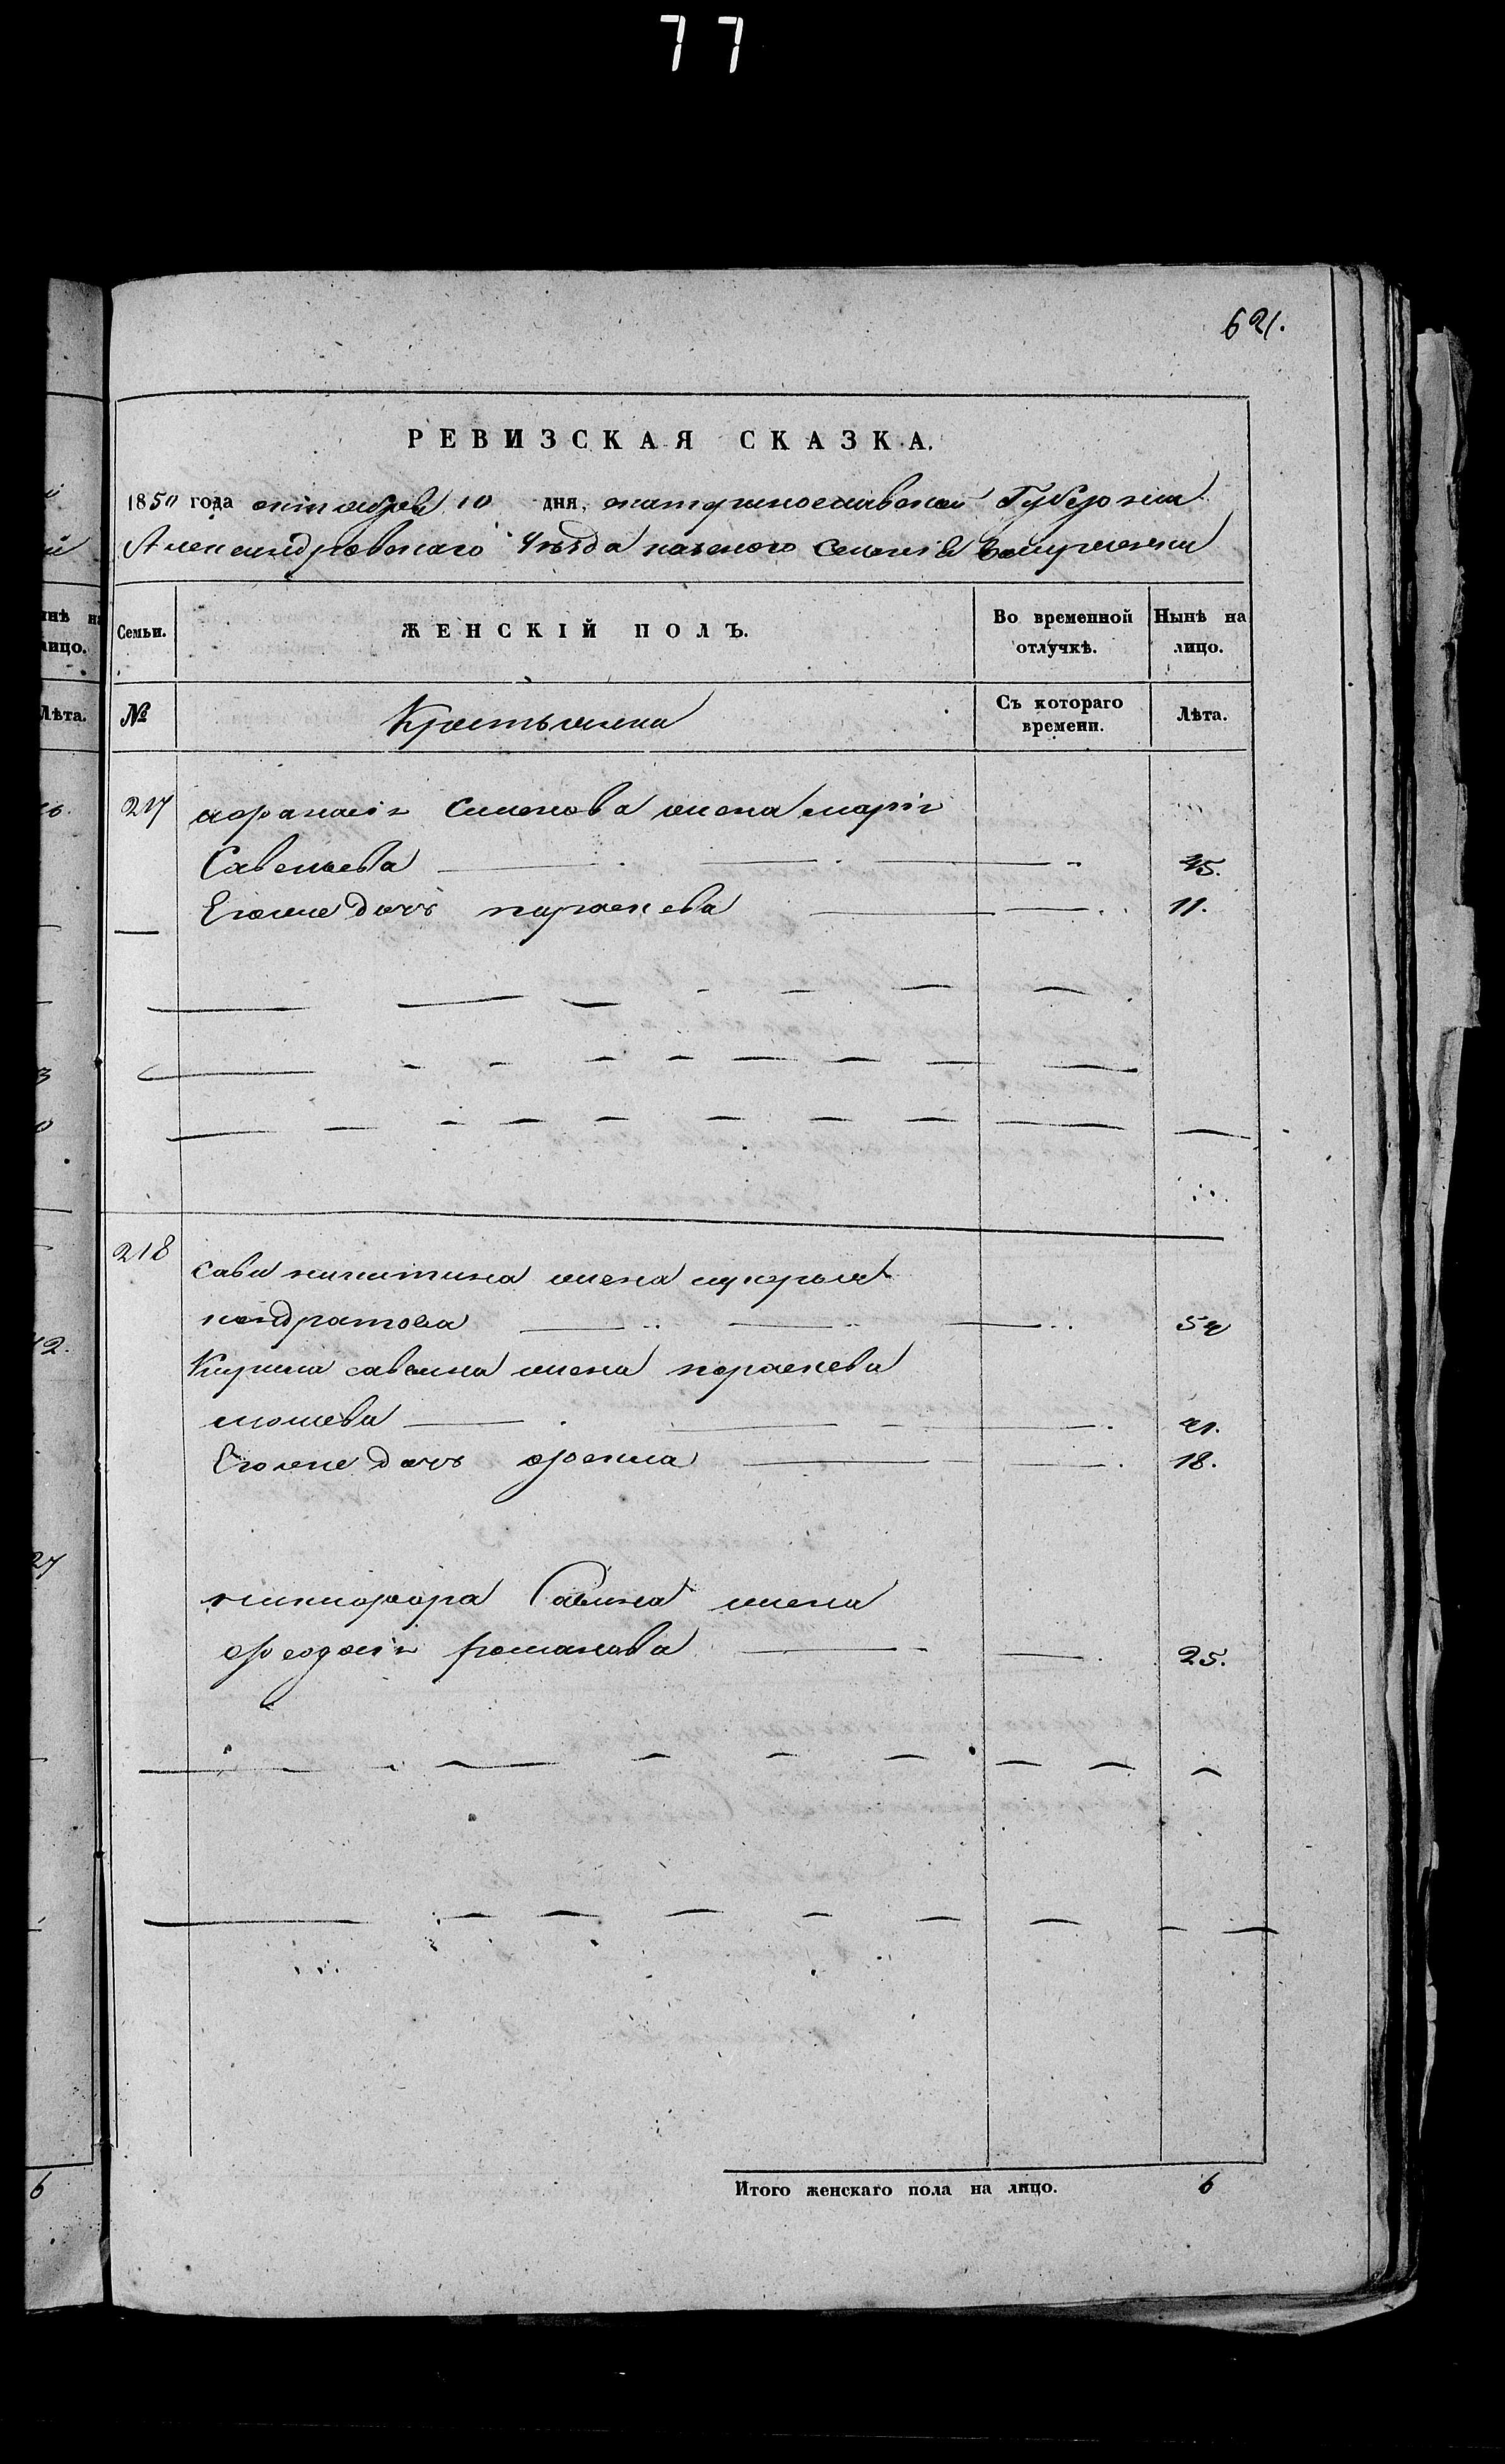 77
621.
РЕВИЗСКАЯ СКАЗКА.
1850 года октября 10 дня, екатеринославской Губернии
Александровскаго Уезда казеного Селения
Семьи. ЖЕНСКІЙ ПОЛЪ. Во временной отлучкѣ. Нынѣ на лицо.
№ Крестьянена Съ котораго времени. Лѣта.
217 афанасія Семенова жена марія
Савельева 45.
Еголие дочь параскева 11.
218 сави никитина жена
кондратова 54
савина жена параскева
41.
Еголене дочь 18.
никифора Савина жена
феодосія романова 25.
Итого женскаго пола на лицо. 6